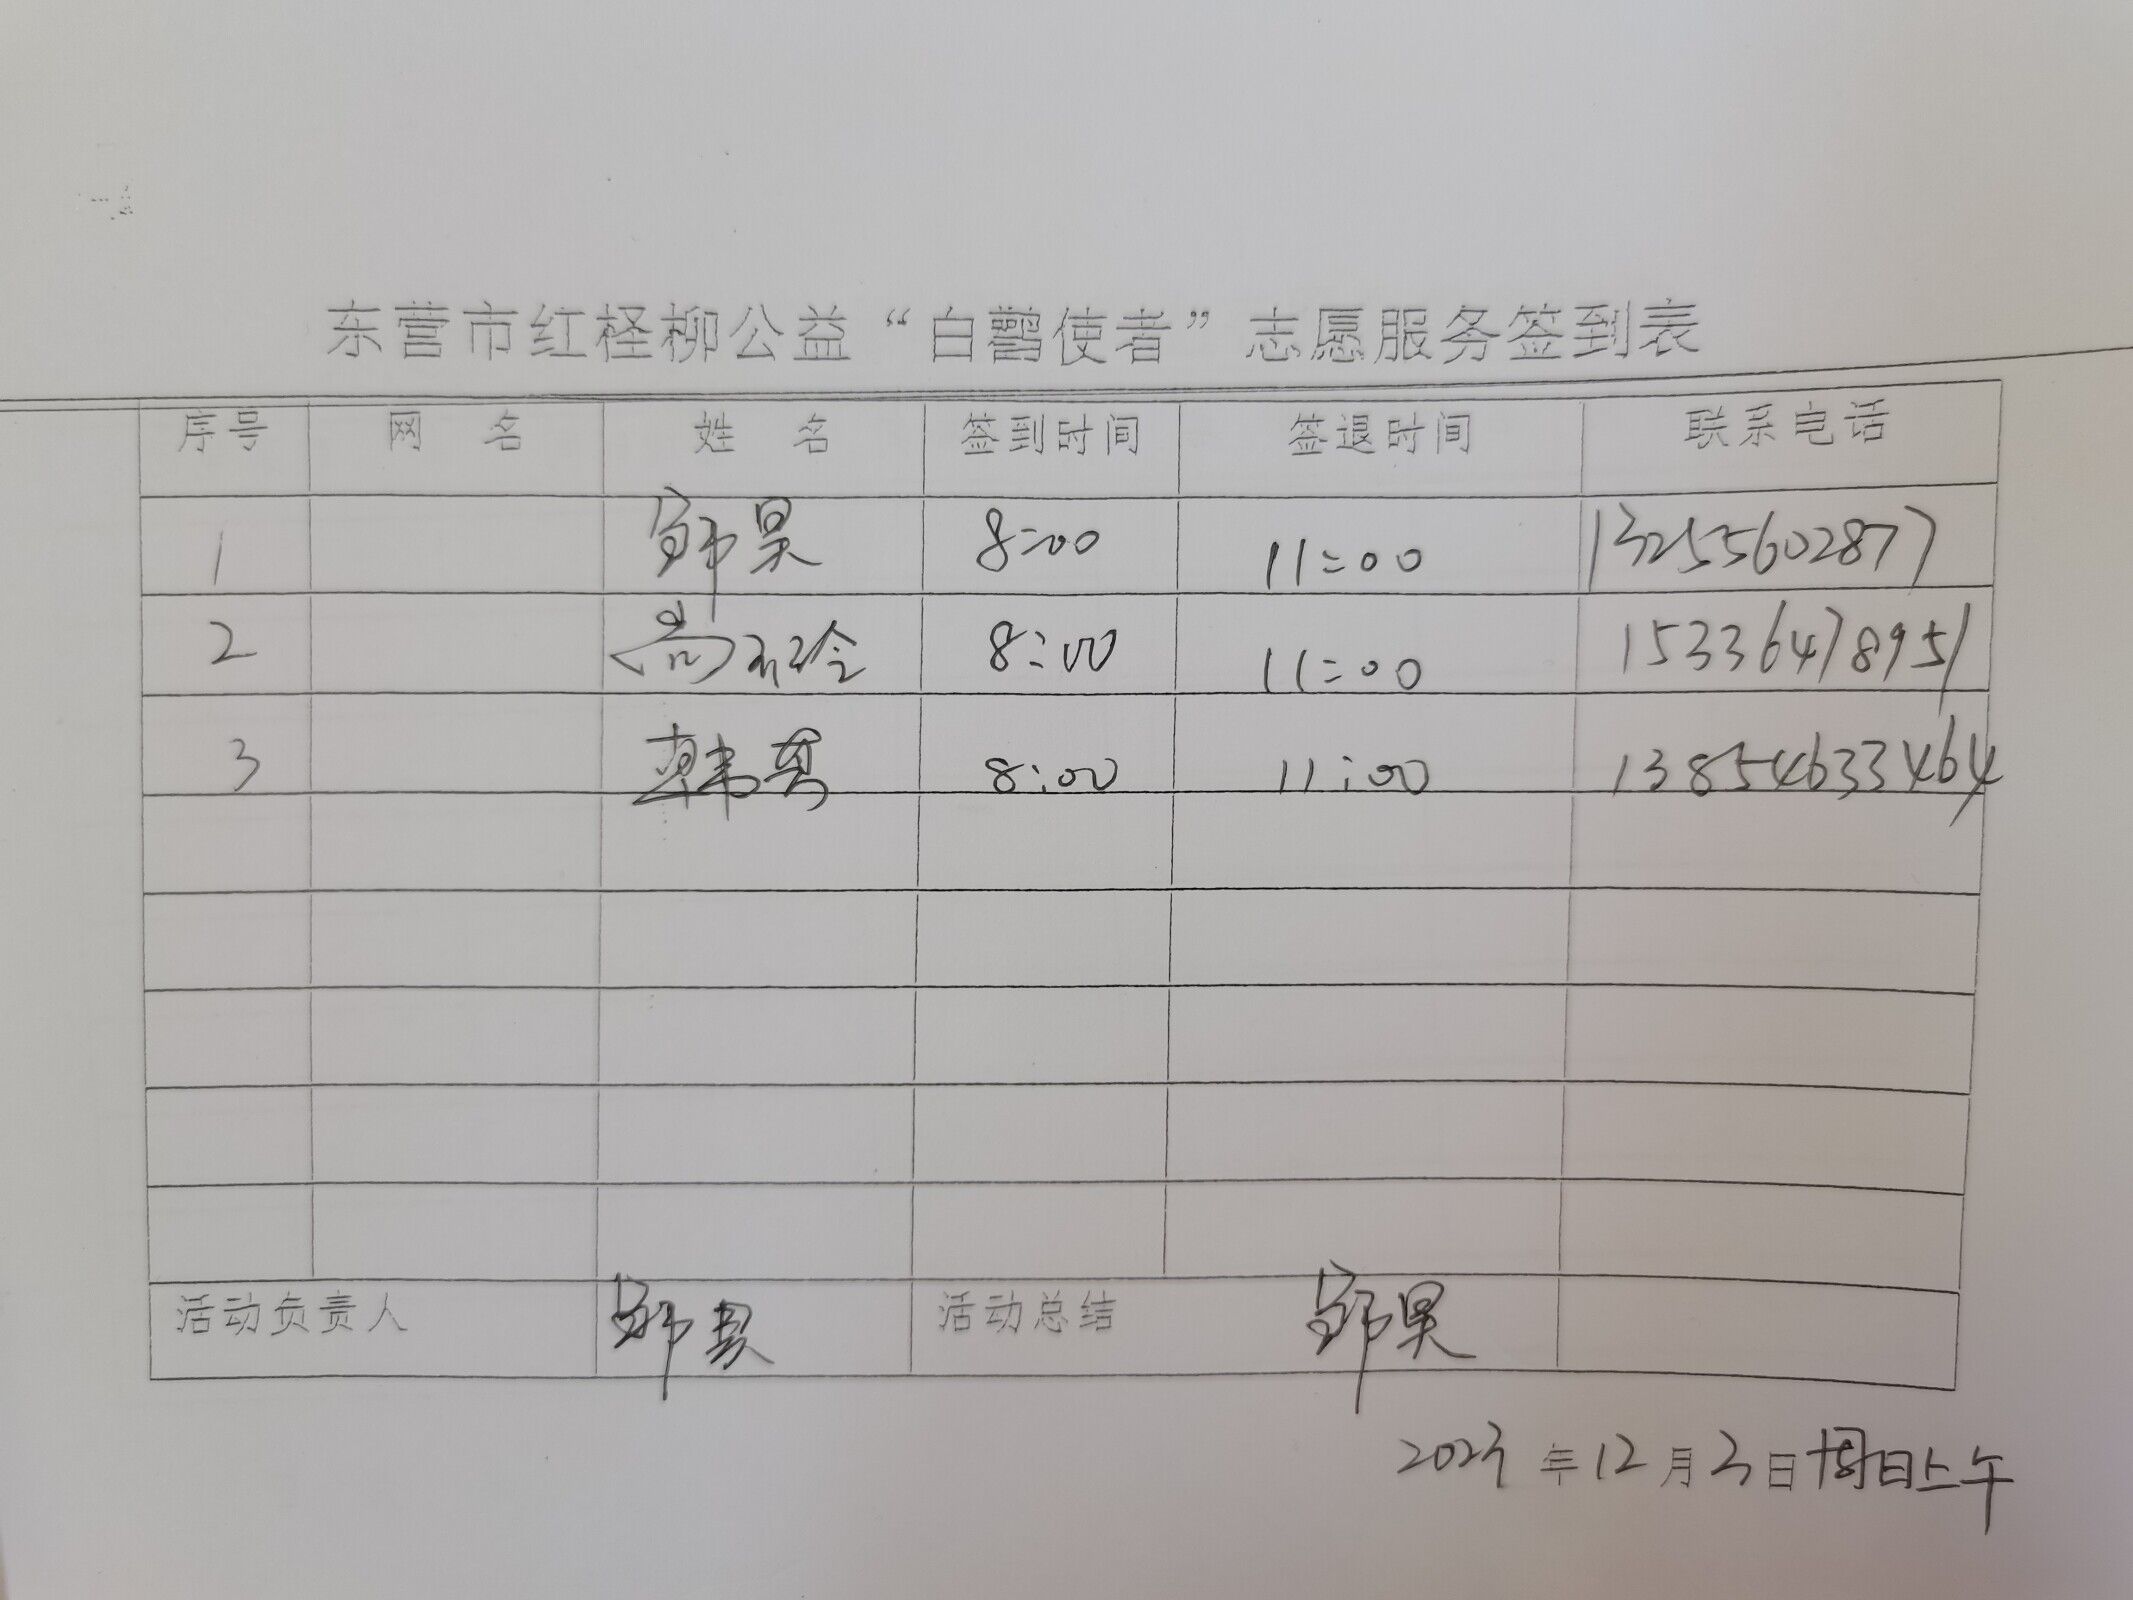 东营市红柽柳公益“白鹳使者”志愿服务签到表
序号 网 名 姓 名 签到时间 签退时间 联系电话
1 8:00 11:00 13255602877
2 8:00 11:00 15336478951
3 8:00 11:00 13854633464
活动负责人 活动总结
2023年12月3日周日上午